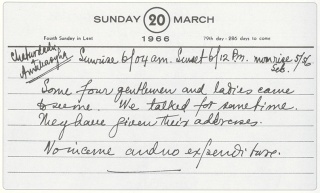 SUNDAY 20 MARCH
Fourth Sunday in Lent 1966 79th day - 286 days to come
Sunrise 6/04 am. Sunset 6/12 Pm. monrise 5/56
Some four gentlemen and ladies came
to see me. We talked for sometime.
They have given their addresses.
No income and no expenditure.